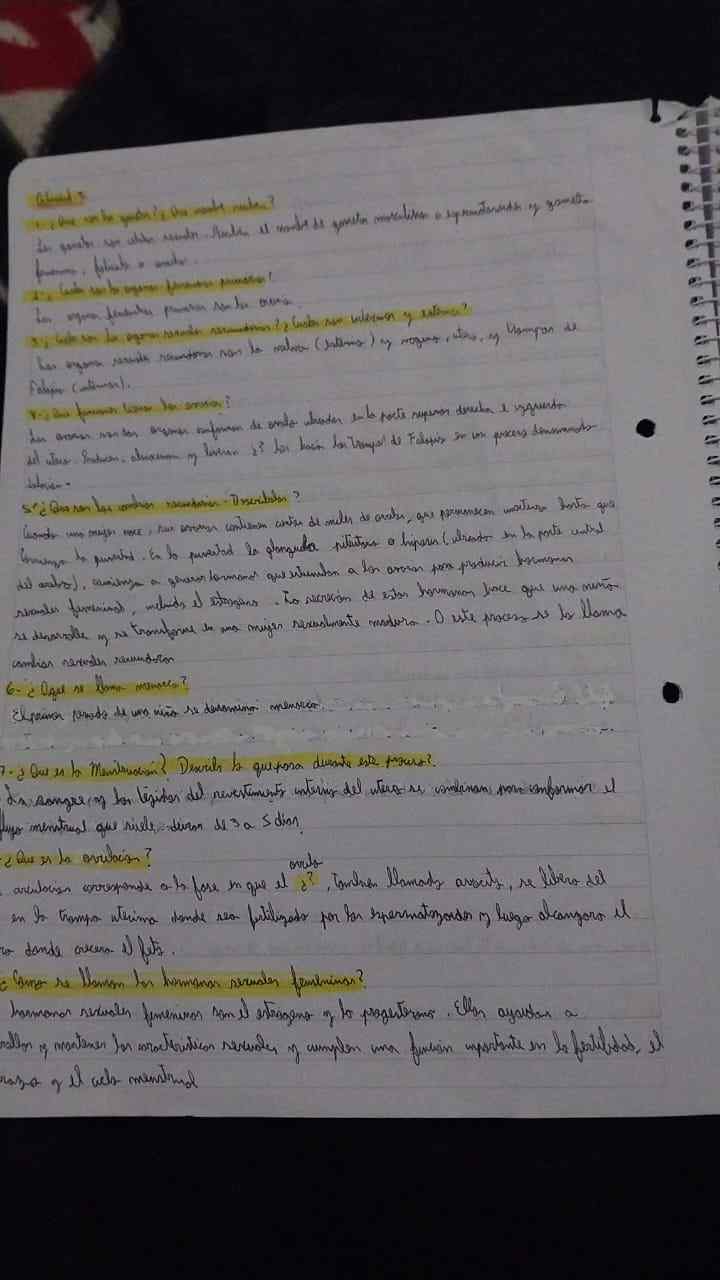 Actividad 3
1. ¿Que son los gametos? ¿Que nombre reciben?
Los gametos son células sexuales. Reciben el nombre de gameto masculino o espermatozoides y gameto
femenino,
2. ¿Cuáles son los órganos femeninos primarios?
Los órganos femeninos primarios son los ovarios.
3. ¿Cuáles son los órganos sexuales secundarios? ¿Cuáles son internos y externos?
Los órganos sexuales secundarios son la vulva (externo) y vagina, utero, y trompas de
Falopio (internos).
4. ¿Que funciones tienen los ovarios?
Los ovarios son dos órganos en forma de ovalo ubicados en la parte superior derecha e izquierda
del utero. Producen, almacenan y liberan ¿? los hacia las Trompas de Falopio en un proceso denominado
5° ¿Que son los cambios secundarios. Descríbelos?
Cuando una mujer nace, sus ovarios contienen cientos de miles de óvulos, que permanecen inactivos hasta que
Comienza la pubertad. En la pubertad la glangula pituitaria o hipófisis (ubicada en la parte central
del cerebro), comienza a generar hormonas que estimulan a los ovarios para producir hormonas
sexuales femeninas, incluido el estrógeno. La secreción de estas hormonas hace que una niña
se desarrolle y se transforme en una mujer sexualmente madura. A este proceso se lo llama
cambios sexuales secundarios
6- ¿A que se llama menarca?
El primer periodo de una niña se denomina
7- ¿Que es la Menstruación? Describe lo que pasa durante este proceso?
La sangre y los tejidos del revestimiento interno del utero se combinan para conformar el
flujo menstrual que suele, duran de 3 a 5 dias
¿Que es la ovulacion?
ovulo
ovulacion corresponde a la fase en que el ¿?, tambien llamado ovocito, se libera del
en la trompa uterina donde sea fertilizado por los espermatozoides y luego alcanzara el
donde crecera el feto.
¿Como se llaman las hormonas sexuales femeninas?
hormonas sexuales femeninas son el estrógeno y la progesterona. Ellas ayudan a
y mantener las características sexuales y cumplen una funcion importante en la fertilidad, el
y el ciclo menstrual